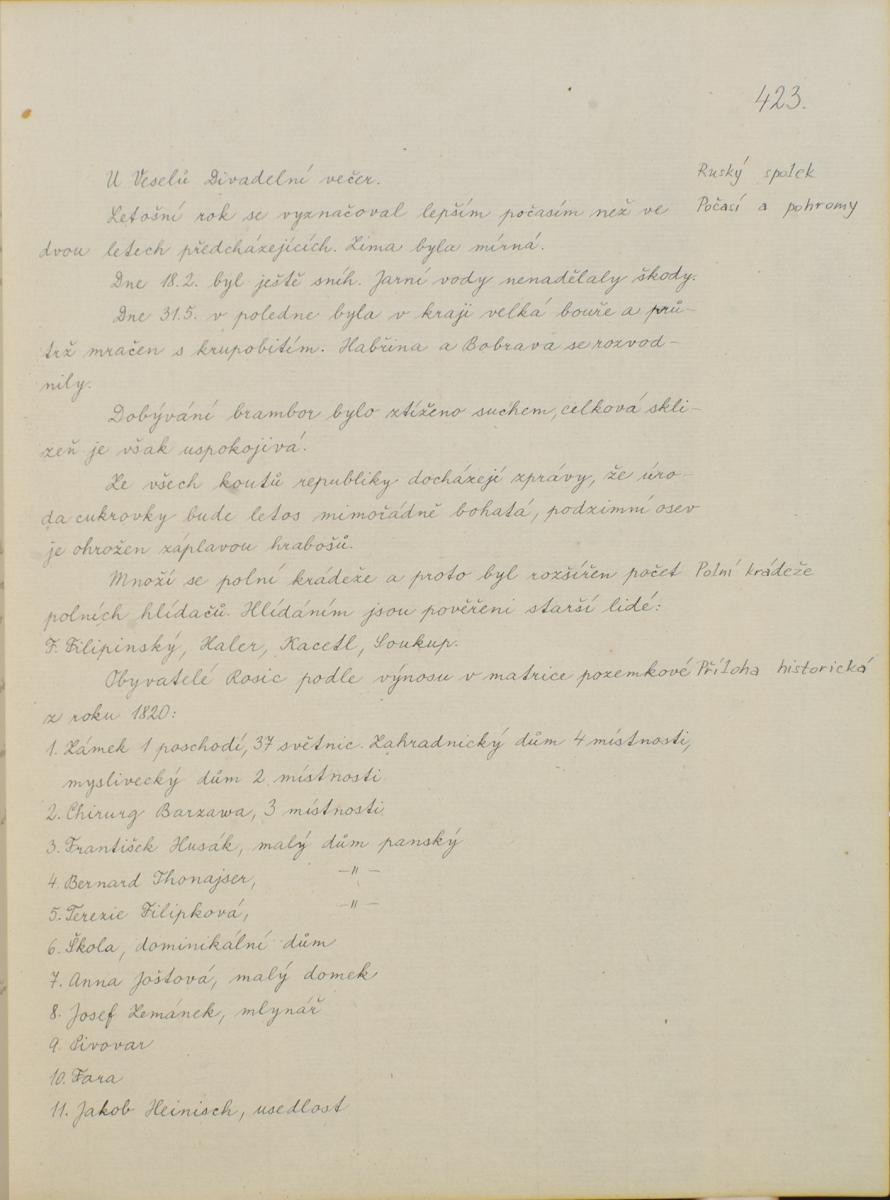 423.
U Veselú Divadelní večer. Ruský spolek
Letošní rok se vyznačoval lepším počasím než ve Počasí a pohromy
dvou letech předcházejících. Zima byla mírná.
Dne 18.2. byl ještě sníh. Jarní vody nenadělaly škody.
Dne 31.5. v poledne byla v kraji velká bouře a prů-
trž mračen s krupobitím. Habřina a Bobrava se rozvod-
nily.
Dobývání brambor bylo ztíženo suchem, celková skli-
zeň je však uspokojivá.
Ze všech koutů republiky docházejí zprávy, že úro-
da cukrovky bude letos mimořádně bohatá, podzimní osev
je ohrožen záplavou hrabošů.
Množí se polní krádeže a proto byl rozšířen počet Polní krádeže
polních hlídačů. Hlídáním jsou pověřeni starší lidé:
F. Filipinský, Haler, Kacetl, Soukup.
Obyvatelé Rosic podle výnosu v matrice pozemkové Příloha historická
z roku 1820:
1. Zámek 1 poschodí, 37 světnic. Zahradnický dům 4 místnosti,
myslivecký dům 2 místnosti
2. Chirurg Barzawa, 3 místnosti
3. František Husák, malý dům panský
4. Bernard Thonajser, —"—
5. Terezie Filipková, —"—
6. Škola, dominikální dům
7. Anna Joštová, malý domek
8. Josef Zemánek, mlynář
9. Pivovar
10. Fara
11. Jakob Heinisch, usedlost